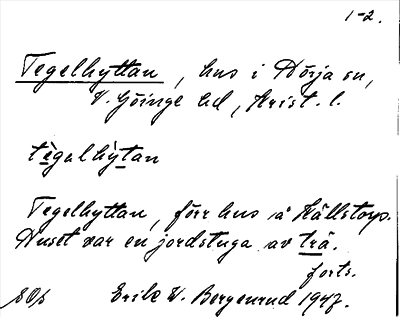 1-2.
Tegelhyttan, hus i Nörja sn,
V. Göinge hd, Krist. l.
tègalhỳtan
Tegelhyttan, förr hus å Källstorp.
Huset var en jordstuga av trä.
forts.
Erik W. Bergenrud 1947.